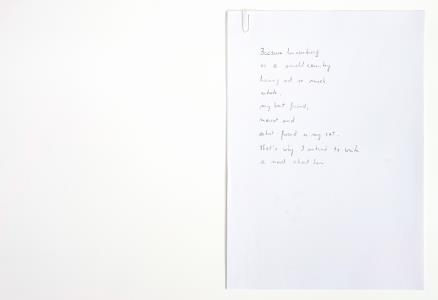 Because Luxembourg
is a small country
having not so much
my best friend,
and
friend is my cat.
That's why I intend to write
a novel about